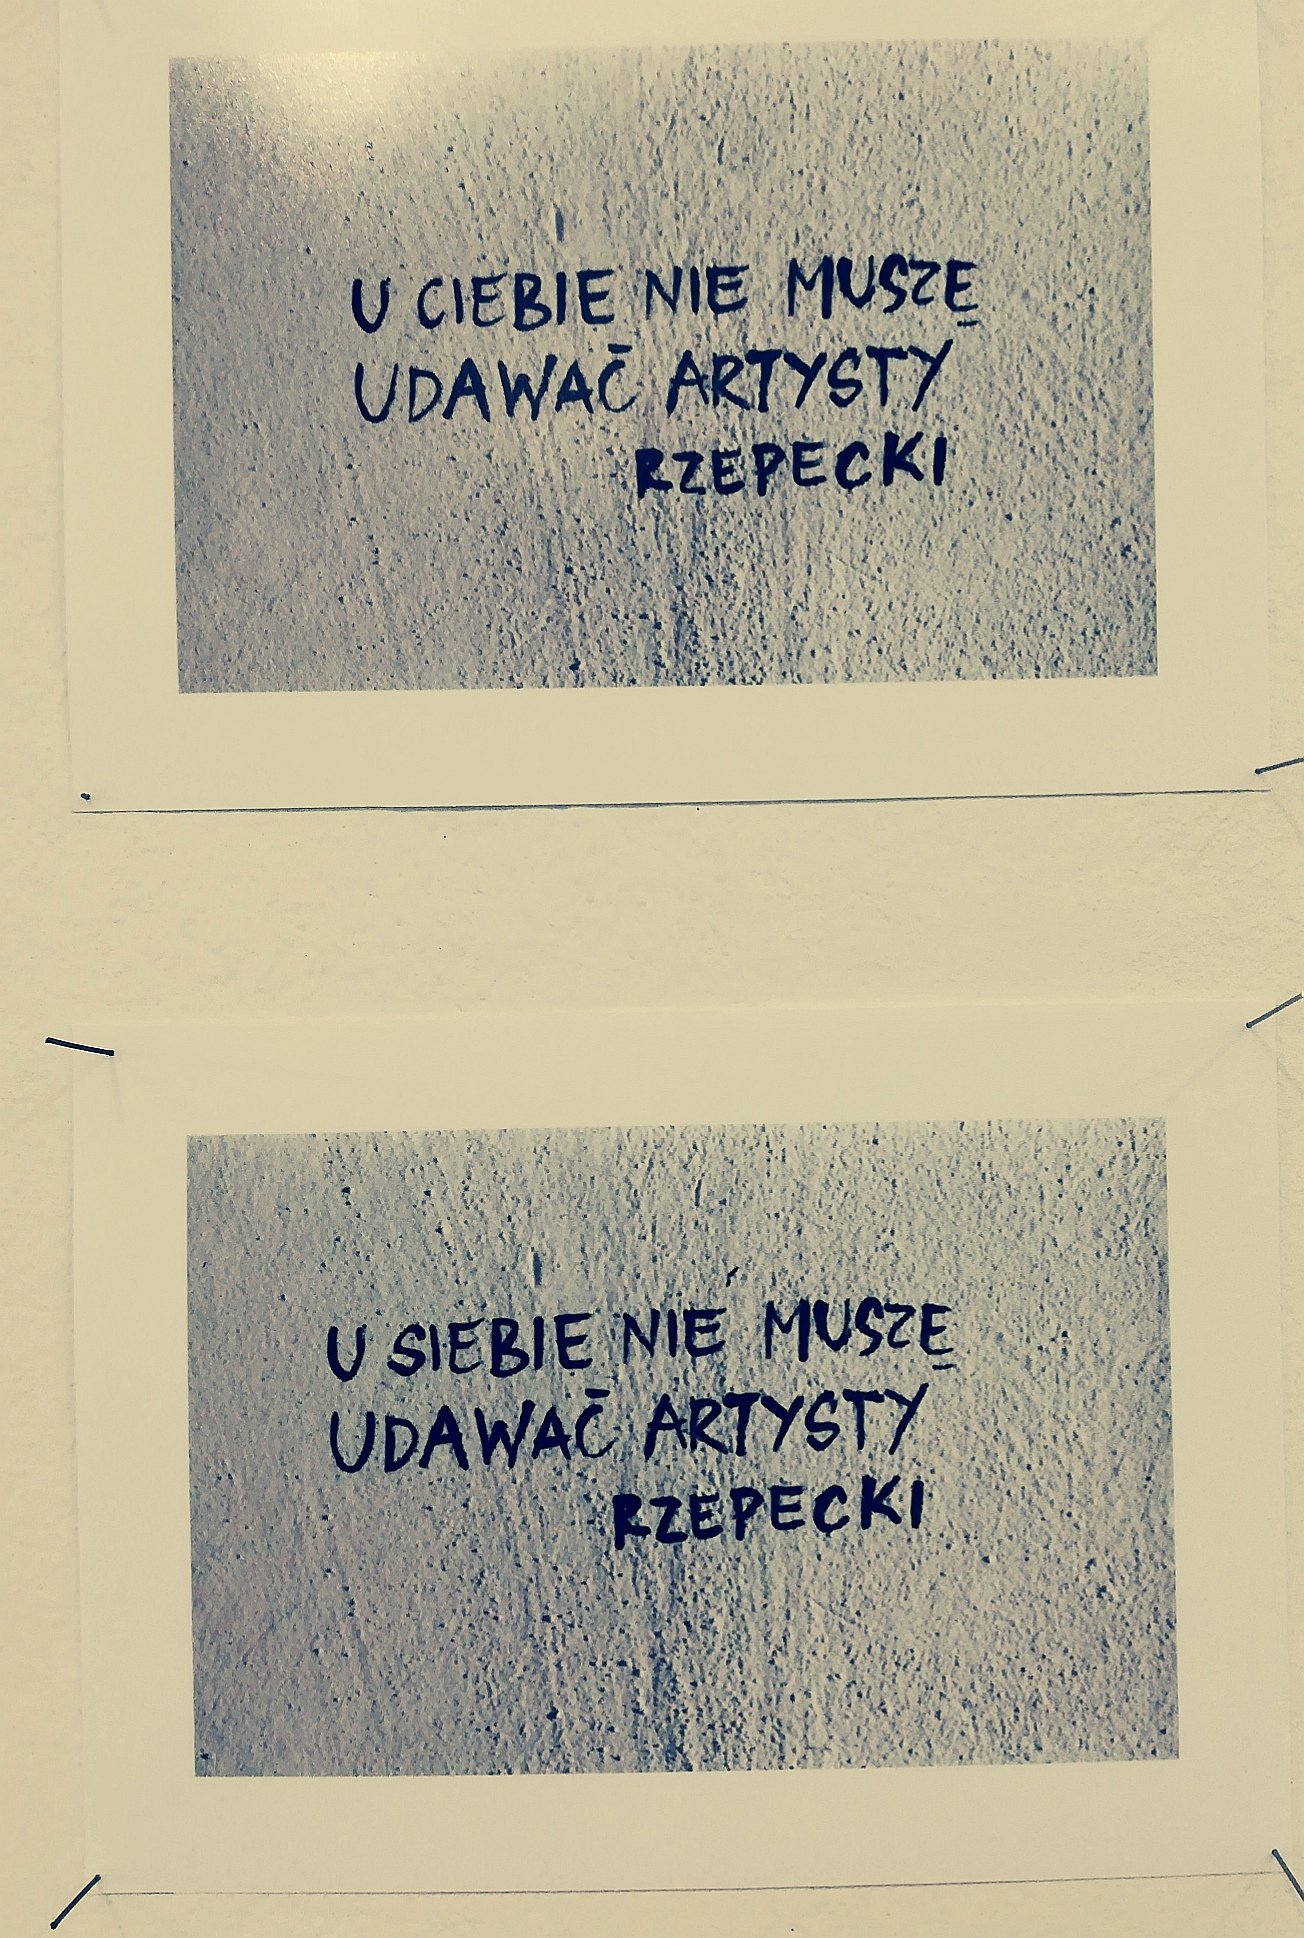 U CIEBIE NIE MUSZĘ
UDAWAĆ ARTYSTY
RZEPECKI
U SIEBIE NIE MUSZĘ
UDAWAĆ ARTYSTY
RZEPECKI